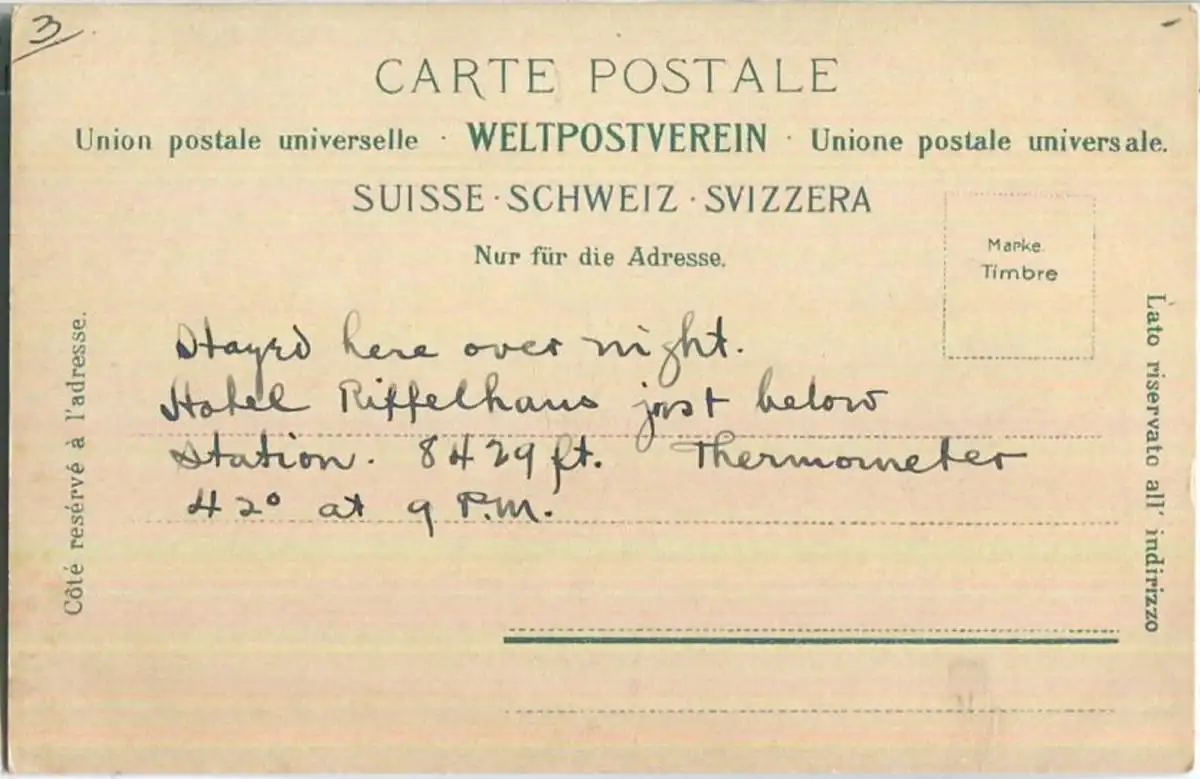 3
CARTE POSTALE
Union postale universelle · WELTPOSTVEREIN · Unione postale universale.
SUISSE · SCHWEIZ · SVIZZERA
Nur für die Adresse.
Marke
Timbre
Côté resérvé à l'adresse.
Stayed here over night.
Hotel Riffelhaus just below
Station. 8429 ft. Thermometer
42° at 9 P.M.
Lato riservato all' indirizzo